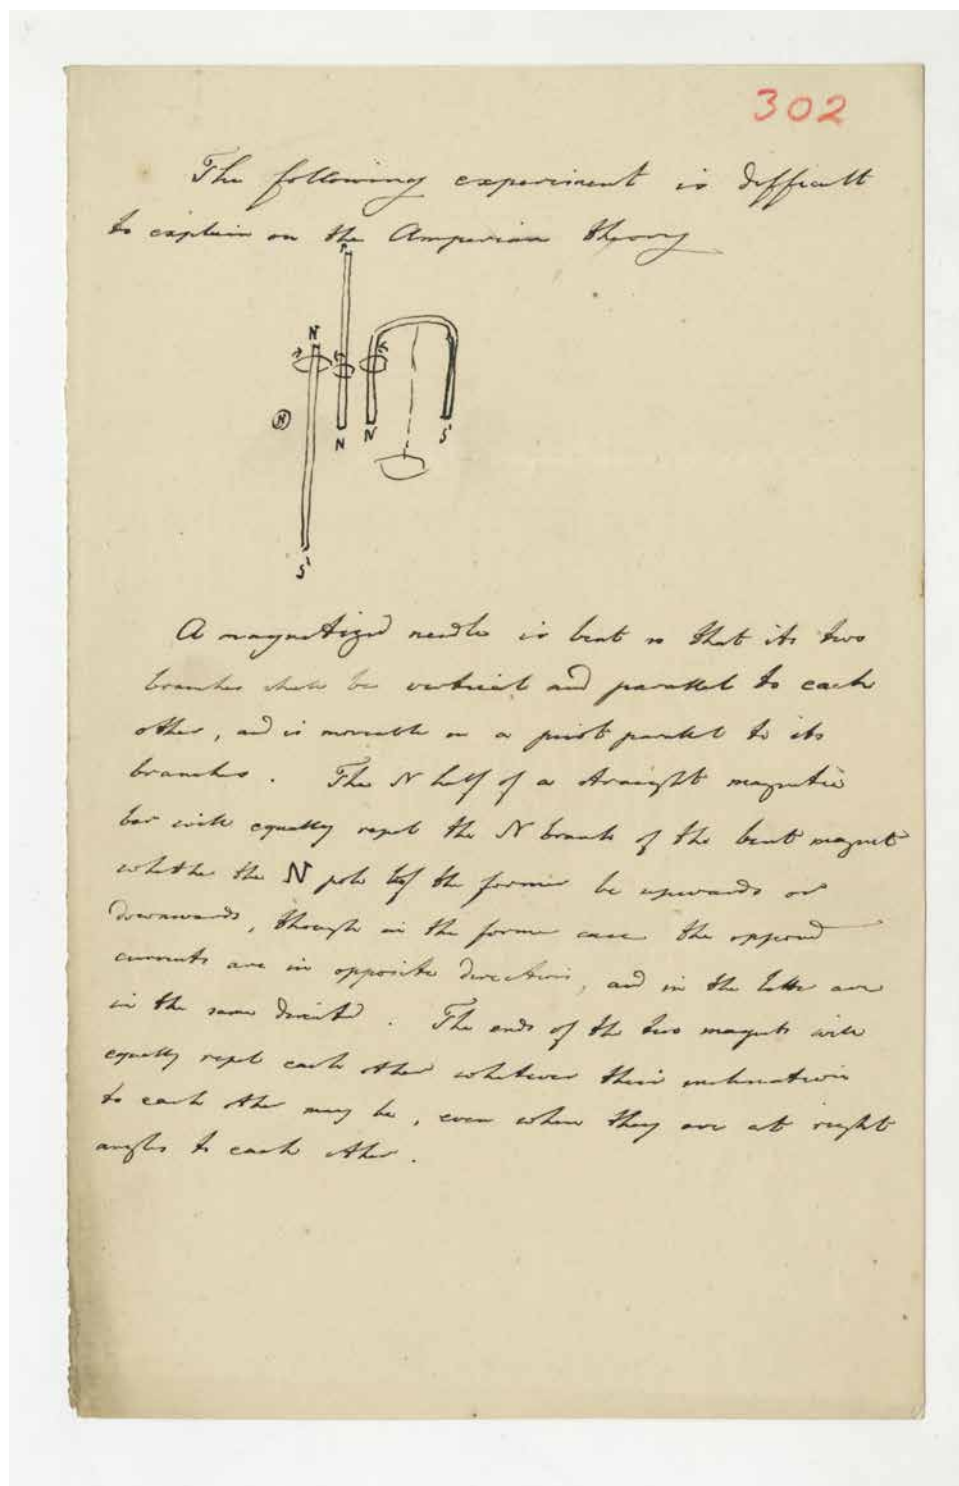 302
The following experiment is difficult
to explain on the Amperian theory
N
N
N
N
S
S
A magnetized needle is bent so that its two
branches shall be vertical and parallel to each
other, and is moveable on a pivot parallel to its
branches. The N half of a straight magnetic
bar will equally repel the N branch of the bent magnet
whether the N pole of the former be upwards or
downwards, though in the former case the opposed
currents are in opposite directions, and in the latter are
in the same directn. The ends of the two magnets will
equally repel each other whatever their inclinations
to each other may be, even when they are at right
angles to each other.